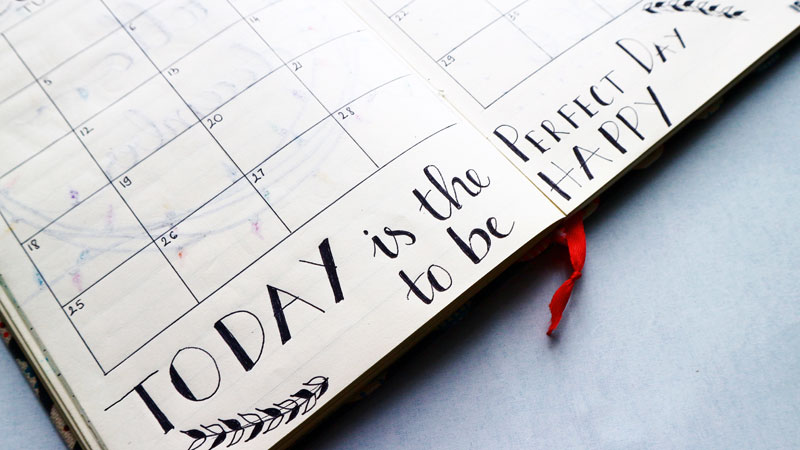 TU
5 6
12 13 14
18 19 20 21
25 26 27 28
22
29 30
TODAY is the PERFECT DAY
to be HAPPY